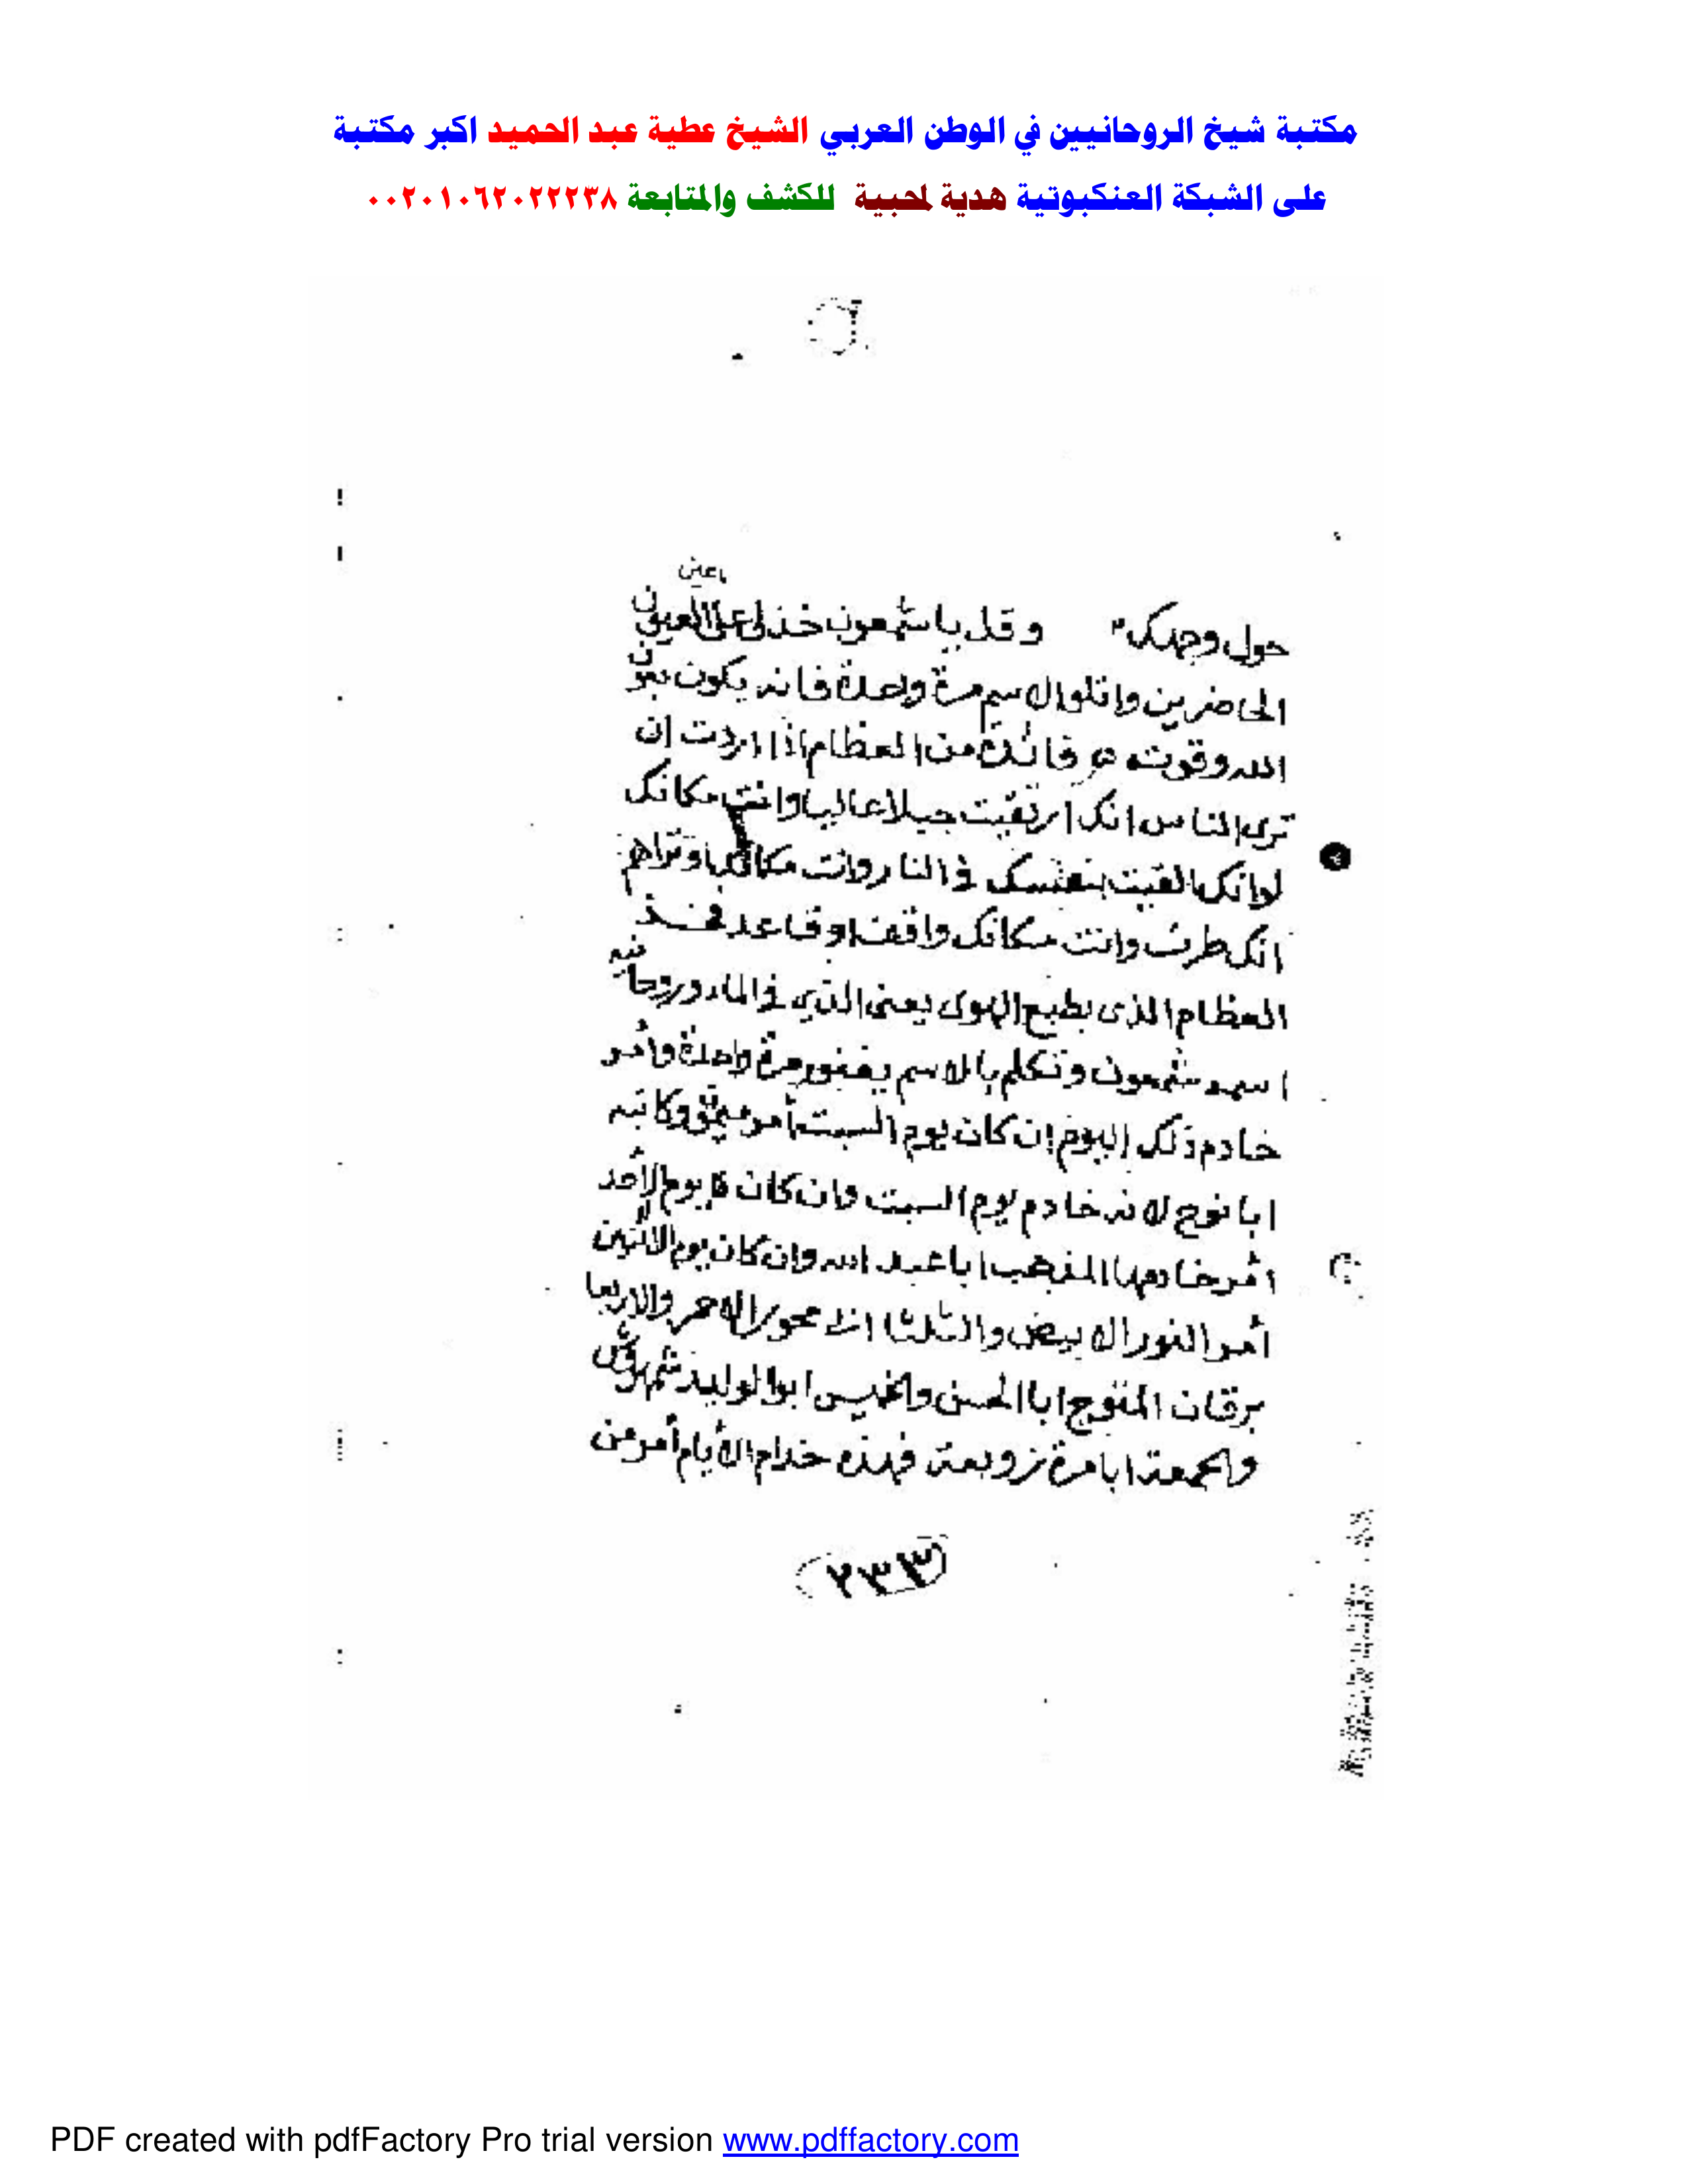 مكتبة شيخ الروحانيين في الوطن العربي الشيخ عطية عبد الحميد اكبر مكتبة
على الشبكة العنكبوتية هدية لمحبية للكشف والمتابعة ٠٠٢٠١٠٦٢٠٢٢٢٣٨
اعين
حول وجهك وقل يا شمعون خذ لى العيون
الحاضرين واتلوا الاسم مرة واحدة فانه يكون بعون
الله وقوته فائدة من العظام اذا اردت ان
ترى الناس انك ارتقيت جبلا عاليا وانت مكانك
لو انك القيت بنفسك فى النار وانت او تراهم
انك طرت وانت مكانك واقف او قاعد فخذ
العظام الذى يطبع الهوى يعنى الذى فى الماء وروحانيه
اسمه شمعون وتكلم بالاسم مرة واحدة وأمر
خادم ذلك اليوم ان كان يوم السبت أمر ميمون وكانيه
ابا نوح لانه خادم يوم السبت وان كان يوم الأحد
أمر خادمها المذهب ابا عبد الله وان كان يوم الاثنين
أمر النور الابيض والثلاثا ابا محوز الاحمر والاربعا
برقان المتوج ابا الحسن والخميس ابوا الوليد شمهورش
والجمعة ابا مرة زوبعة فهذه خدام الأيام أمر من
٢٣٣
PDF created with pdfFactory Pro trial version www.pdffactory.com